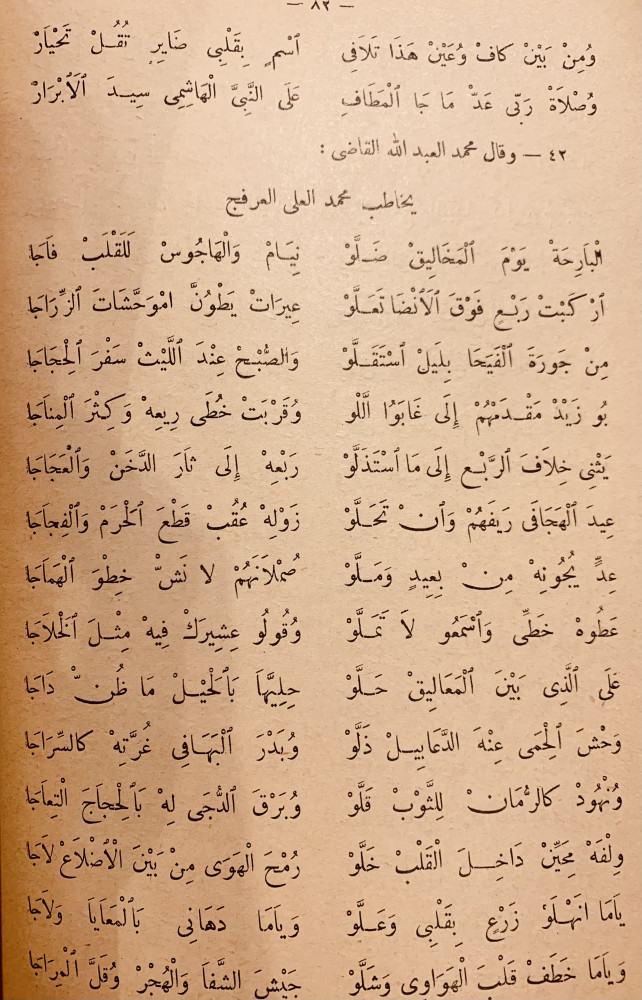 — ٨٢ —
وُمِنْ بَيْنْ كافْ وُعَيْنْ هَذَا تَلَافِى اَسْمٍ بِقَلْبِى ضَايِرٍ تُقُلْ تَحْيَارْ
وُصْلَاةْ رَبّى عَدّْ مَا جَا اَلْمَطَافِ عَلَى النَّبِىِّ الْهَاشِمِى سِيدَ اَلَابْرَارْ
٤٢ — وقال محمد العبد الله القاضى :
يخاطب محمد العلى العرفج
الْبَارِحَهْ يَوْمَ اَلْمَخَالِيقْ ضَلَّوْ نِيَامْ وَالْهَاجُوسْ لَلْقَلْبْ فَاجَا
اَرْكَبْتْ رَبْعٍ فَوْقَ اَلَانْضَا تَعَلَّوْ عِيرَاتْ يَطْوُنَّ امْوَحَّشَاتَ الزِّرَاجَا
مِنْ جَورَةَ اَلْفَيَحَا بِلَيلْ اَسْتَقَلَّوْ وَالصُّبْحْ عِنْدَ اَللَّيْثْ سَفْرَ اَلْحِجَاجَا
بُو زَيْدْ مَقْدَمْهُمْ إِلَى غَابَوُا اَللَّوْ وُقَرْبَتْ خُطَى رِيعِهْ وَكِثْرَ اَلْمِنَاجَا
يَثْنِى خِلَافَ اَلرَّبْعِ إِلَى مَا اَسْتَذَلَّوْ رَبْعِهْ إِلَى ثَارَ الدَّخَنْ وَاَلْعَجَاجَا
عِيدَ اَلْهَجَافَى رَيفَهُمْ وَانْ تَحَلَّوْ زَوْلِهْ عُقُبْ قَطْعَ اَلْخَرَمْ وَاَلْفِجَاجَا
عِدٍّ يُجُونِهْ مِنْ بِعِيدٍ وَمَلَّوْ صُمْلَانَهُمْ لا نَشّْ خِطْوَ اَلْهَمَاجَا
عَطُوهْ خَطِّى وَاَسْمَعُو لَا تَمَلَّوْ وُقُولُو عِشِيرَكْ فِيهْ مِثْلَ اَلْخْلَاجَا
عَلَى اَلَّذِى بَيْنَ اَلْمَعَالِيقْ حَلَّوْ حِلِيَّهَا بَاَلْحَيْلْ مَا ظُنّْ دَاجَا
وَحْشَ اَلْحِمَى عِنْهَ الدَّعَابِيلْ ذَلَّوْ وُبَدْرَ اَلْبَهَا فِى غُرَّتِهْ كالسِّرَاجَا
وُنْهُودْ كالرُّمَانْ لِلثَّوْبْ قَلَّوْ وُبَرْقَ اَلدُّجَى لِهْ بَاَلْحِجَاجَ الْتِعَاجَا
وِلْفَهْ مِحَيِّنْ دَاخِلَ اَلْقَلْبْ خَلَّوْ رُمْحَ اَلْهَوَى مِنْ بَيْنَ اَلْاضْلَاعْ لَاجَا
يَامَا انْهَلَوْ زَرْعٍ بِقَلْبِى وَعَلَّوْ وَيَامَا دَهَانِى بَاَلْمَعَايَا وَلَاجَا
وَيَامَا خَطَفْ قَلْبَ اَلْهَوَاوِى وَشَلَّوْ جَيْشَ الشَّفَا وَالْهُجْرْ وُقَلَّ اَلْمِرَاجَا